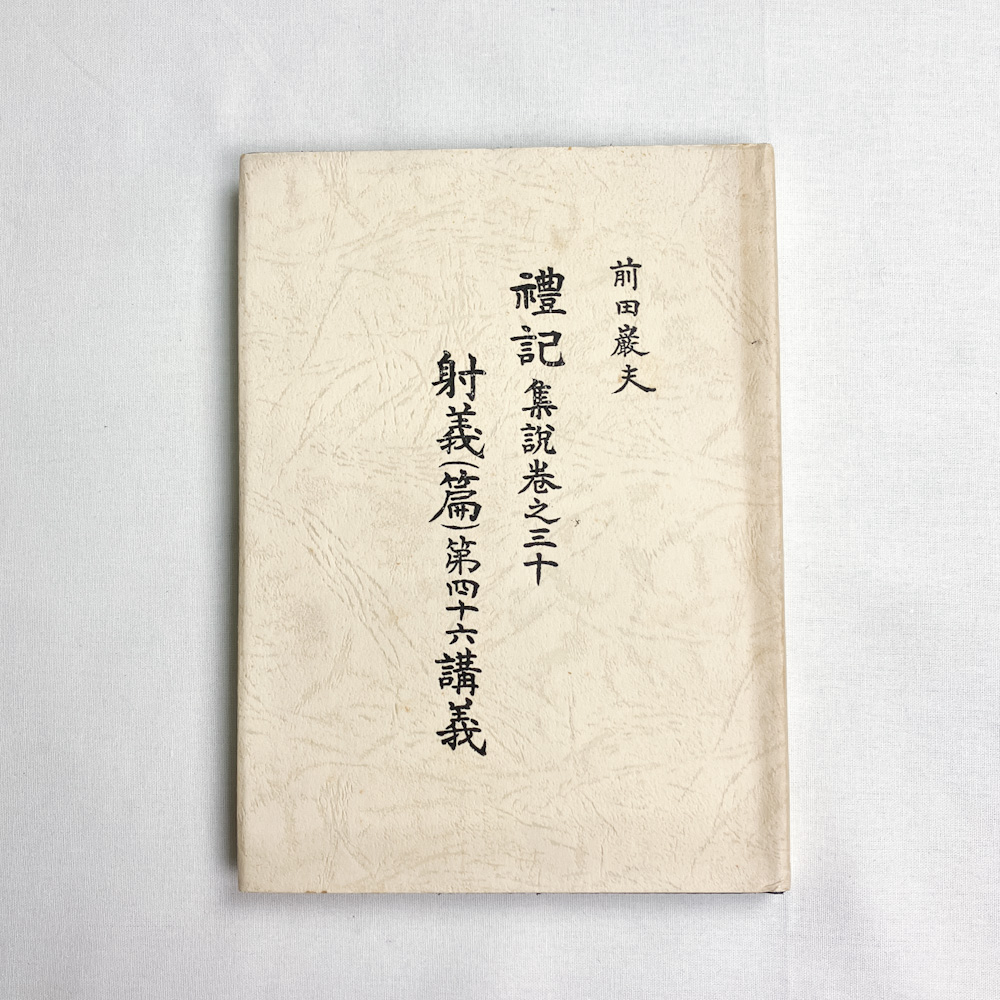 前田巖夫
禮記集說卷之三十
射義(篇)第四十六講義